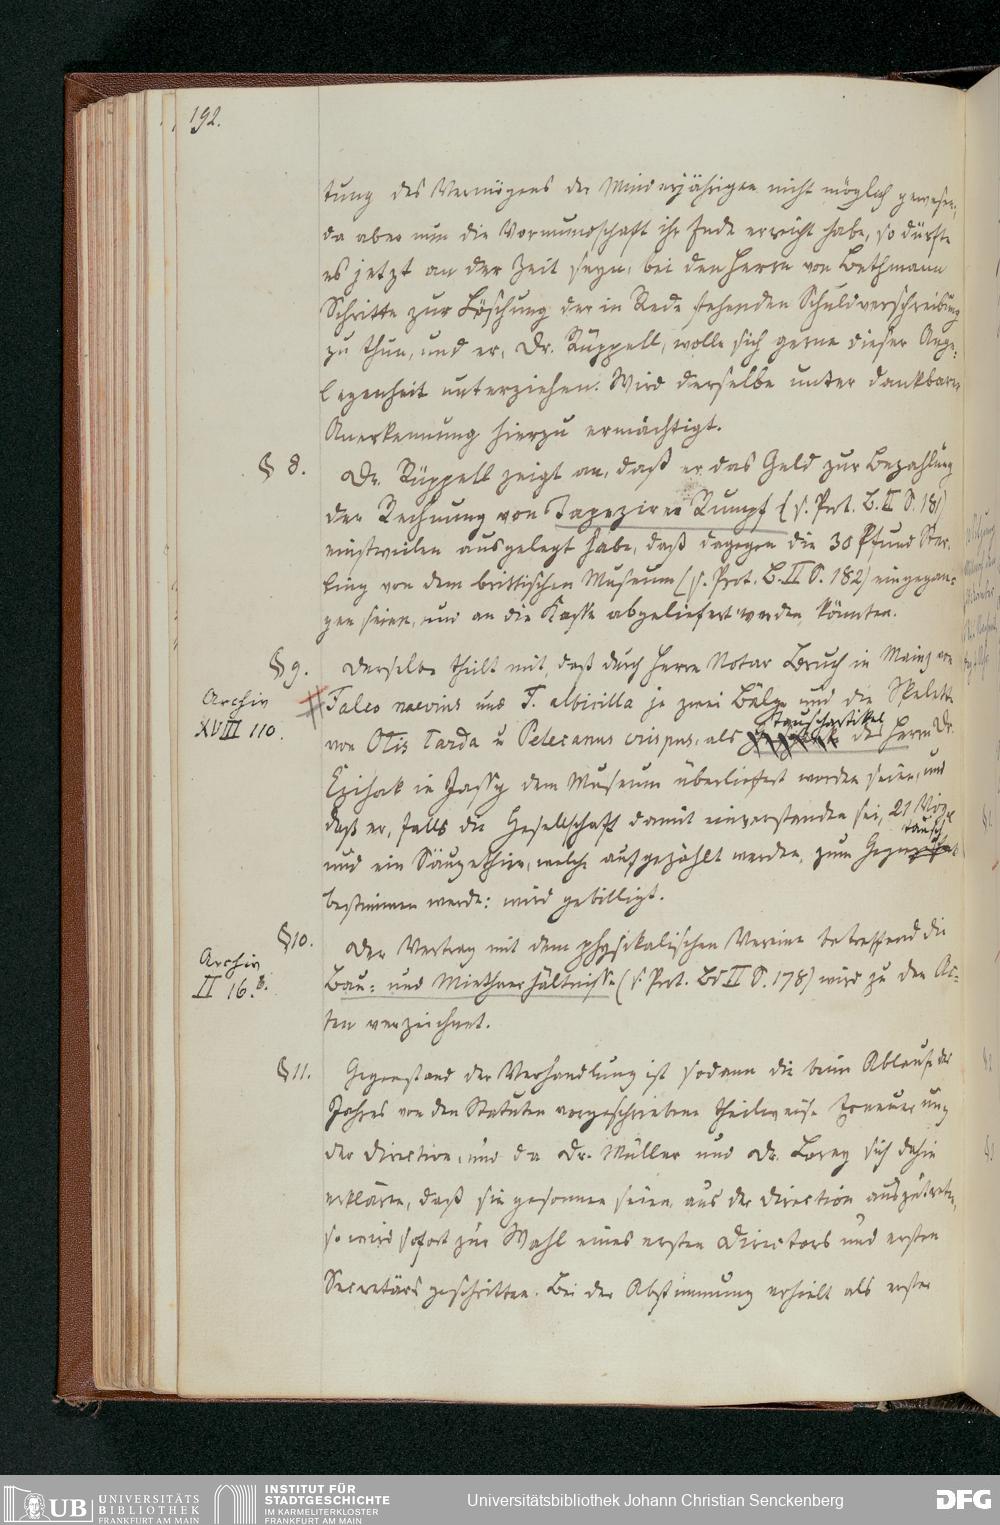 192.
tung des Vermögens der Minderjährigen nicht möglich gewesen,
da aber nun die Vormundschaft ihr Ende erreicht habe, so dürfte
es jetzt an der Zeit seyn, bei den Herrn von Bethmann
Schritte zur Löschung der in Rede stehenden Schuldverschreibung
zu thun, und er, Dr. Rüppell, wolle sich gerne dieser Ange-
legenheit unterziehen. Wird derselbe unter dankbarer
Anerkennung hierzu ermächtigt.
§ 8. Dr. Rüppell zeigt an, daß er das Geld zur Bezahlung
der Rechnung von Tapezirer Rumpf (s. Prot. B. II S. 181)
einstweilen ausgelegt habe, daß dagegen die 30 Pfund Ster-
ling von dem brittischen Museum (s. Prot. B. II S. 182) eingegan-
gen seien, und an die Kasse abgeliefert werden könnten.
§ 9. Derselbe theilt mit, daß durch Herrn Notar Bruch in Mainz von
Archiv
XVIII 110.
Falco naevius und F. albicilla je zwei Bälge und die Skelette
Tauschartikel
von Otis Tarda u Pelecanus crispus, als des Herrn Dr.
Czihak in Jassy dem Museum überliefert worden seien, und
daß er, falls die Gesellschaft damit einverstanden sei, 21 Vögel
tausch
und ein Säugethier, welche aufgezählt werden, zum Gegen
bestimmen werde: wird gebilligt.
§ 10. Der Vertrag mit dem physikalischen Vereine betreffend die
Archiv
II 16. b.
Bau- und Miethverhältnisse (s. Prot. Bd II S. 178) wird zu den Ac-
ten verzeichnet.
§ 11. Gegenstand der Verhandlung ist sodann die beim Ablauf des
Jahres von den Statuten vorgeschriebene theilweise Erneuerung
der Direction, und da Dr. Müller und Dr. Lorey sich dahin
erklären, daß sie gesonnen seien aus der Direction auszutreten,
so wird sofort zur Wahl eines ersten Directors und ersten
Secretärs geschritten. Bei der Abstimmung erhielt als erster
UB UNIVERSITÄTS
BIBLIOTHEK
FRANKFURT AM MAIN
INSTITUT FÜR
STADTGESCHICHTE
IM KARMELITERKLOSTER
FRANKFURT AM MAIN
Universitätsbibliothek Johann Christian Senckenberg
DFG